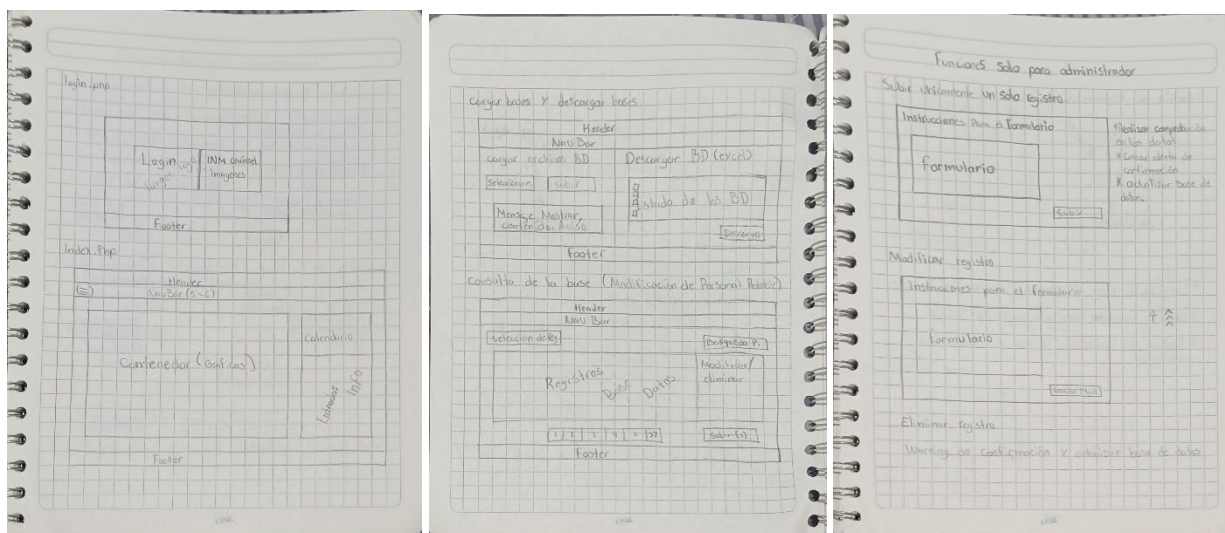 login.php
Login
INM
Imagenes
Footer
Index.Php
Header
NavBar (5-6)
Calendario
Contenedor (Graficas)
Entradas
Info
Footer
cargar bases y descargar bases
Header
Nav Bar
cargar archivo BD
Descargar BD (excel)
Seleccionar
Subir
Listado de las BD
Mensaje, Mostrar,
contenido. Aviso
Descargar
Footer
Consulta de la base (Modificación de Personal
Header
Nav Bar
Busqueda P.
Modificar/
eliminar
Registros
Base
Datos
Subir (1)
Footer
Funciones solo para administrador
Subir unicamente un solo registro
Instrucciones Para el Formulario
Formulario
*Realizar comprobación
de los datos
*Enviar alerta de
confirmación
*actualizar base de
datos.
Subir
Modificar registro
Instrucciones para el formulario
Formulario
Eliminar registro
Warning de confirmación y actualizar base de datos